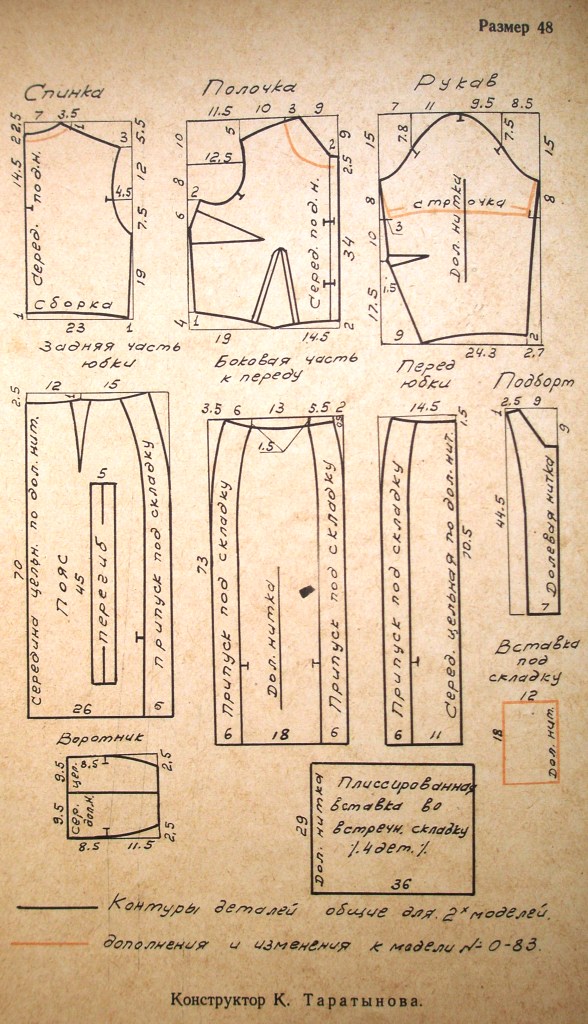 Размер 48
Спинка
7 3.5
2 2.5
1
3
5.5
14.5
12
4.5
7.5
Серед. по д.н.
19
Сборка
1
23
1
Полочка
11.5 10 3 9
10
5
9
2
2.5
12.5
8
2
6
Серед. по д. н.
34
4
1
19
14.5
2
Рукав
7 11 9.5 8.5
15
7.8
7.5
15
8
строчка
8
3
10
Дол. нитка
1.5
17.5
9
24.3
2
2.7
Задняя часть
юбки
12 15
2.5
1
70
Середина цельн. по дол. нит.
Пояс
45
5
перегиб
Припуск под складку
26
6
Боковая часть
к переду
3.5 6 13 5.5 2
0.5
1.5
73
Припуск под складку
Дол. нитка
Припуск под складку
6 18 6
Перед
юбки
14.5
1.5
Припуск под складку
Серед. цельная по дол. нит.
70.5
6 11
Подборт
2.5 9
1
9
44.5
Долевая нитка
7
Вставка
под
складку
12
18
Дол. нит.
Воротник
9.5
8.5
2.5
цел.
Сер.
дол.н.
9.5
2,5
8.5 11.5
29
Дол. нитка
Плиссированная
вставка во
встречн. складку
⁒ 4 дет. ⁒
36
Контуры деталей общие для 2х моделей.
дополнения и изменения к модели № 0-83.
Конструктор К. Таратынова.